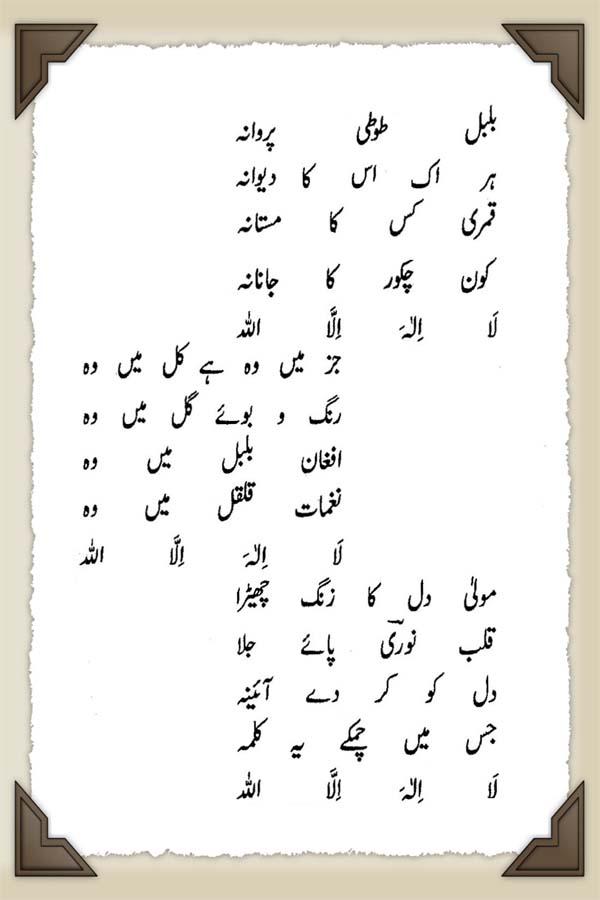 بلبل طوطی پروانہ
ہر اک اس کا دیوانہ
قمری کس کا مستانہ
کون چکور کا جانانہ
لَا اِلٰہَ اِلَّا اللہ
جز میں وہ ہے کل میں وہ
رنگ و بوئے گل میں وہ
افغان بلبل میں وہ
نغمات قلقل میں وہ
لَا اِلٰہَ اِلَّا اللہ
مولیٰ دل کا زنگ چھیڑا
قلب نوریؔ پائے جلا
دل کو کر دے آئینہ
جس میں چمکے یہ کلمہ
لَا اِلٰہَ اِلَّا اللہ